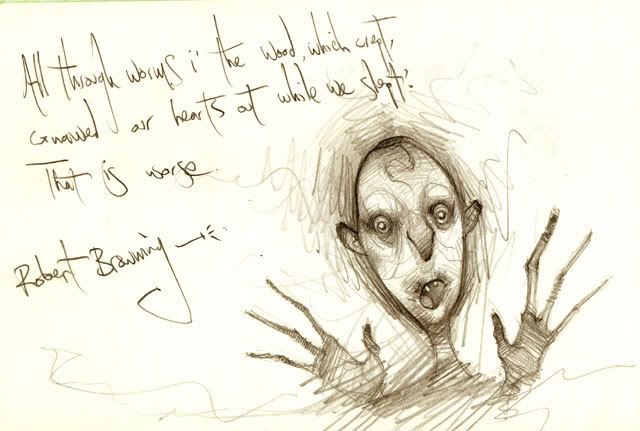 All through worms i' the wood, which crept,
Gnawed our hearts out while we slept:
That is worse.
Robert Browning